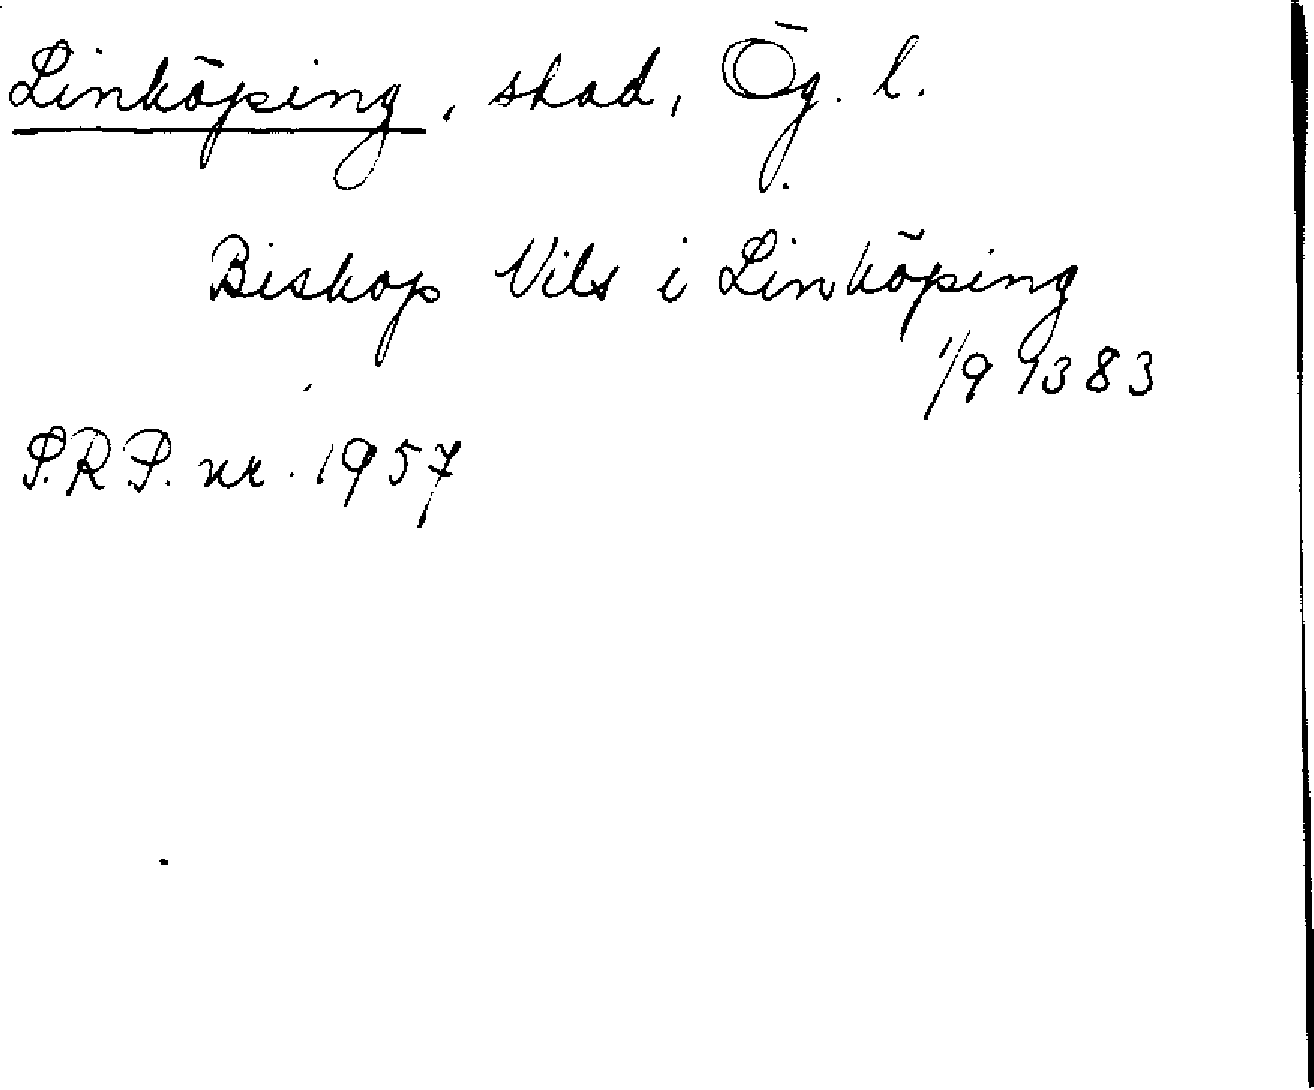 Linköping, stad, Ög. l.
Biskop Nils i Linköping
1/9 1383
S.R.P. nr. 1957